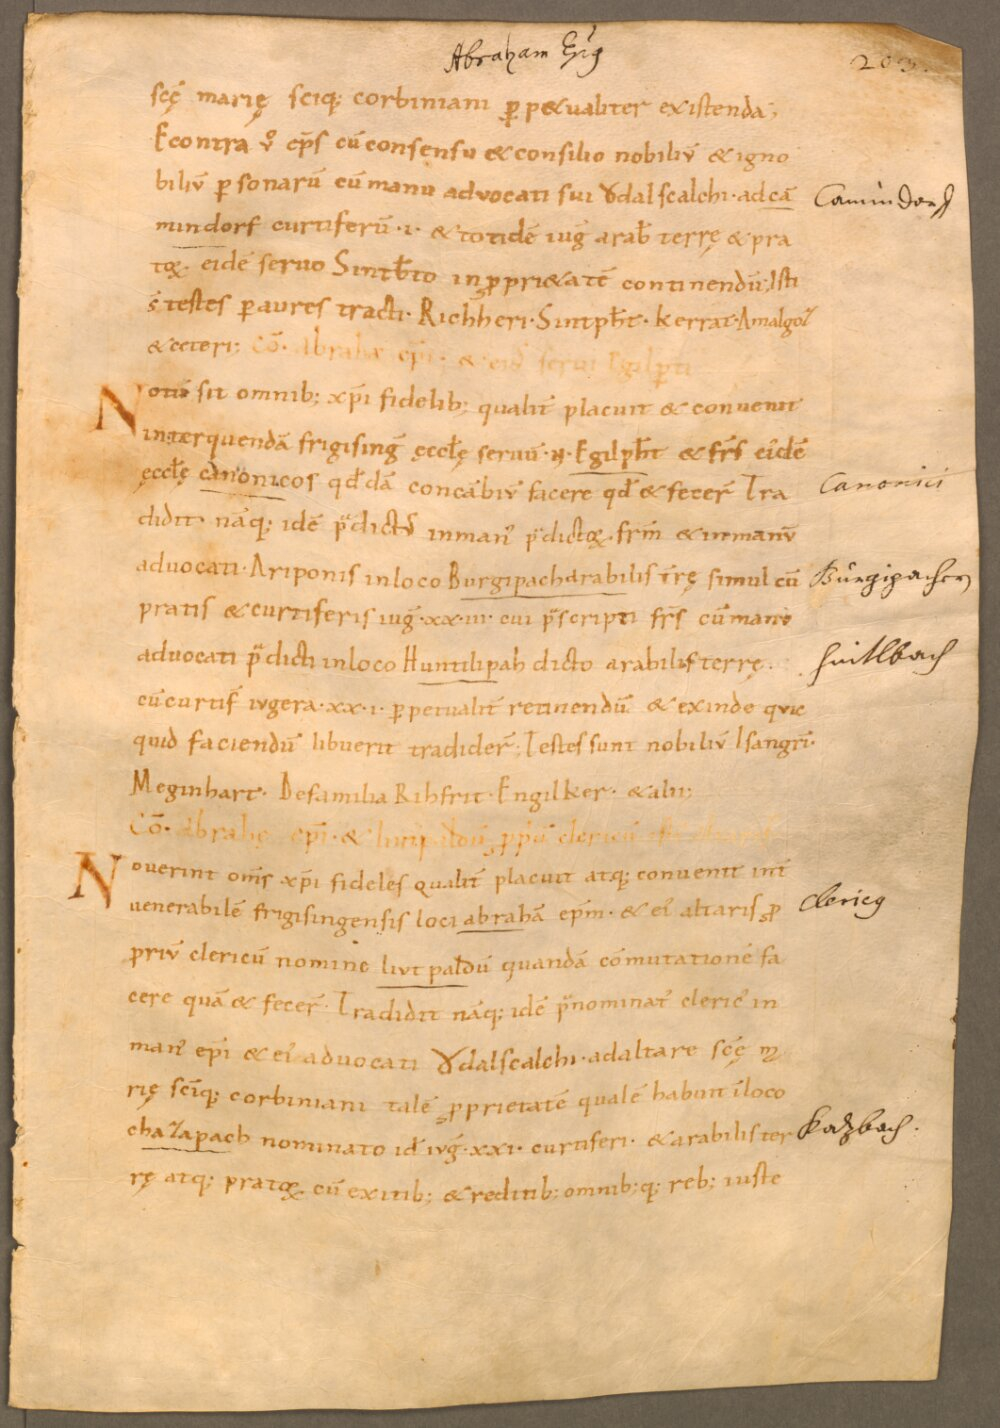 Abraham Epūs
203.
scę̄ marię sciq; corbiniani ꝑpetualiter existenda;
Econtra v̊ ep̄s cū consensu & consilio nobiliū & igno
biliū ꝑsonarū cū manu advocati sui Ȣdalscalchi · ad cā
Camindorf
mindorf curtiferū · i · & totidē iuḡ arab̄ terrę & pra
toꝝ eidē servo Sintb̄to in ꝓprietatē continendū; Isti
s̄ testes ꝑ aures tracti · Richheri · Sintph̄t · Kerrat · Amalgoz
& ceteri; Cō · abrahę ep̄i · & eiđ servi Egilꝑti
Notū sit omnib; xp̄i fidelib; qualit̄ placuit & convenit
inter quendā frigisinḡ ęccl̄ę servū · N · Egilph̄t & fr̄s eidē
ęccl̄ę canonicos qđdā concābiū facere qđ & fecer̄ Tra
Canonici
didit nāq; idē p̄dictꝰ in manꝰ p̄dictoꝝ fr̄m & in manū
advocati · Ariponis in loco Burgipach arabilis t̄rę simul cū
Burgipachen
pratis & curtiferis iuḡ · xx · iii · cui p̄scripti fr̄s cū manu
advocati p̄dicti in loco Huntilipah dicto arabilis terrę
huitlbach
cū curtif̄ iugera · xx · i · ꝑpetualit̄ retinendū & exinde quic
quid faciendū libuerit tradider̄; Testes sunt nobiliū Isangrī ·
Meginhart · De familia Rihfrit · Engilker · & alii;
Cō · Abrahę ep̄i · & liutpaldū ꝓpriū clericū
Noverint om̄s xp̄i fideles qualit̄ placuit atq; convenit int̄
venerabilē frigisingensis loci abrahā ep̄m · & eiꝰ altaris ꝓ
clericꝰ
priū clericū nomine liutpaldū quandā cōmutationē fa
cere quā & fecer̄ · Tradidit nāq; idē p̄nominatꝰ clericꝰ in
manꝰ ep̄i & eiꝰ advocati Ȣdalscalchi · ad altare scę̄ m̄
rię sciq; corbiniani talē ꝓprietatē qualē habuit ī loco
chazapach nominato id iuḡ · xxi · curtiferi · & arabilis ter
Kazbach ·
rę atq; pratoꝝ cū exitib; & reditib; omnib; q; reb; iuste